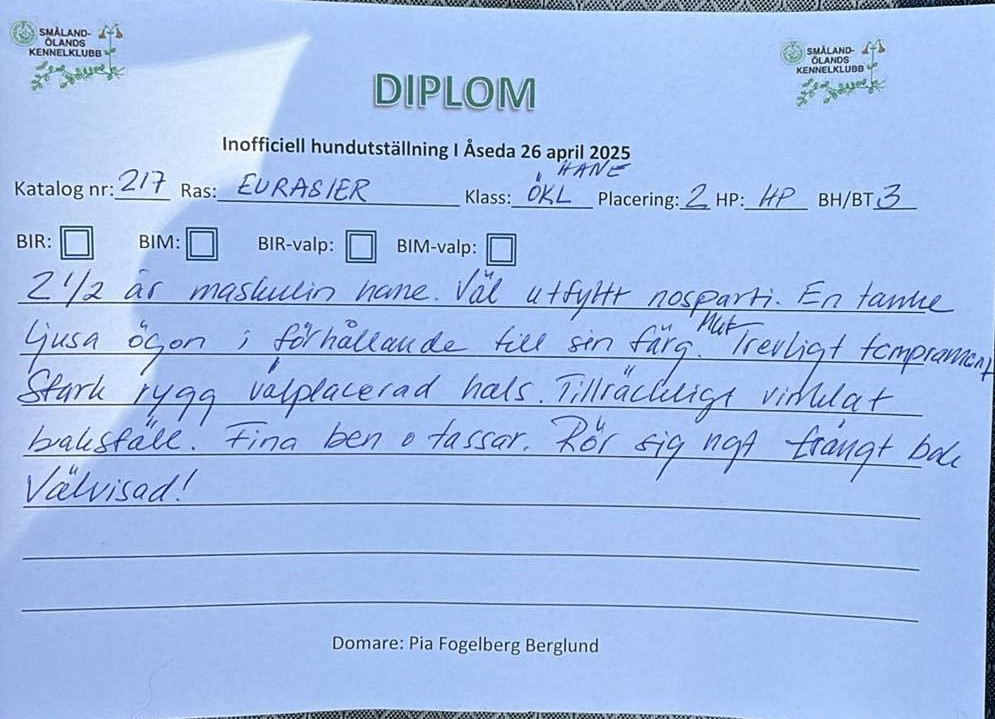 SMÅLAND-
ÖLANDS
KENNELKLUBB
SMÅLAND-
ÖLANDS
KENNELKLUBB
DIPLOM
Inofficiell hundutställning I Åseda 26 april 2025
HANE
Katalog nr: 217 Ras: EURASIER Klass: ÖKL Placering: 2 HP: HP BH/BT 3
BIR: BIM: BIR-valp: BIM-valp:
2 1/2 år maskulin hane. Väl utfyllt nosparti. En tanke
ljusa ögon i förhållande till sin färg. Trevligt temprament
Stark rygg välplacerad hals. Tillräckligt vinklat
bakställ. Fina ben o tassar. Rör sig ngt trångt bak
Välvisad!
Domare: Pia Fogelberg Berglund